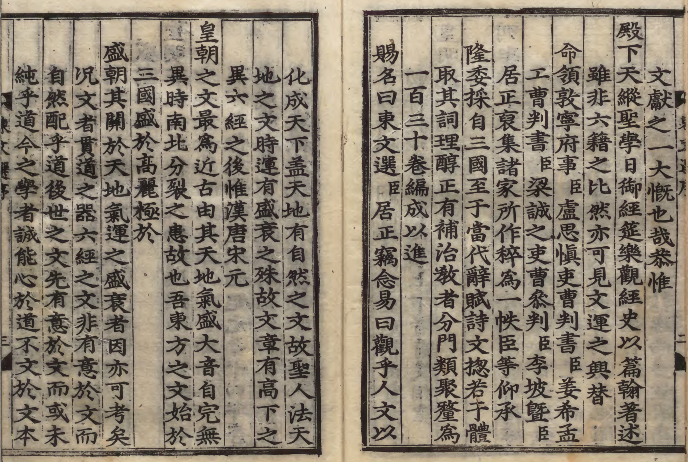 文獻之一大慨也哉恭惟
殿下天縱聖學日御經筵樂觀經史以篇翰著述
雖非六籍之比然亦可見文運之興替
命領敦寧府事臣盧思愼吏曹判書臣姜希孟
工曹判書臣梁誠之吏曹叅判臣李坡曁臣
居正裒集諸家所作稡爲一帙臣等仰承
隆委採自三國至于當代辭賦詩文摠若干體
取其詞理醇正有補治敎者分門類聚釐爲
一百三十卷編成以進
賜名曰東文選臣居正竊念易曰觀乎人文以
化成天下盖天地有自然之文故聖人法天
地之文時運有盛衰之殊故文章有高下之
異六經之後惟漢唐宋元
皇朝之文最爲近古由其天地氣盛大音自完無
異時南北分裂之患故也吾東方之文始於
三國盛於高麗極於
盛朝其關於天地氣運之盛衰者因亦可考矣
况文者貫道之器六經之文非有意於文而
自然配乎道後世之文先有意於文而或未
純乎道今之學者誠能心於道不文於文本